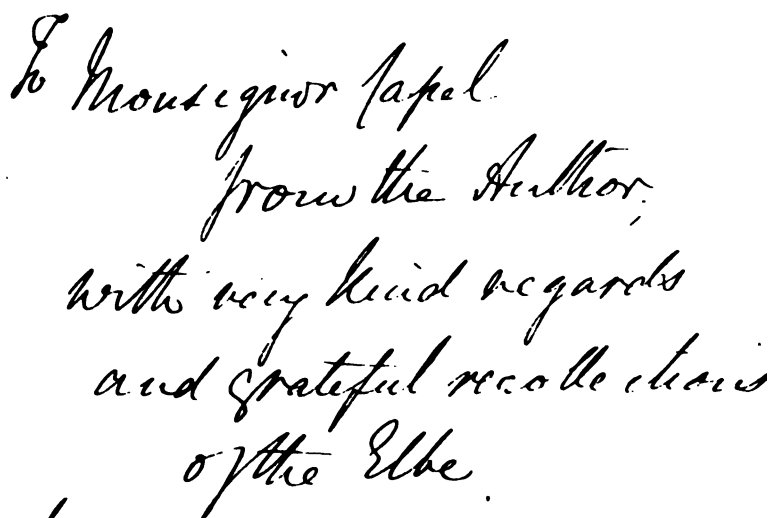 To Monsignor Capel
from the Author,
with very kind regards
and grateful recollections
of the Elbe.